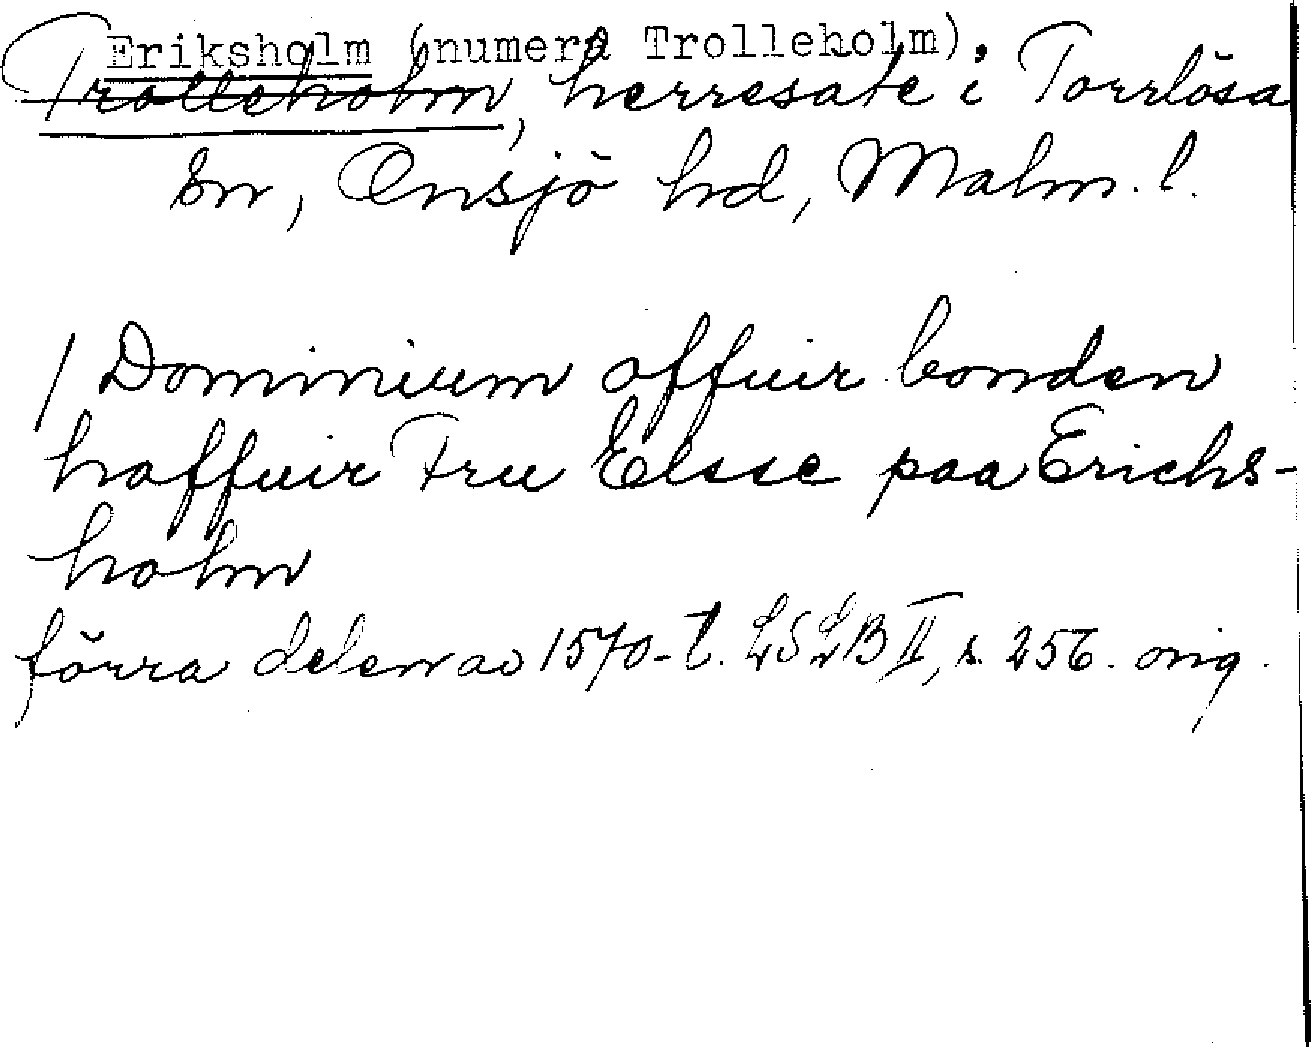 Eriksholm (numera Trolleholm),
Trolleholm, herresäte i Torrlösa
sn, Onsjö hd, Malm. l.
/ Dominium offuir bonden
haffuir Fru Elsse paa Erichs-
holm
förra delen av 1570-t. LSLB II, s. 256. orig.